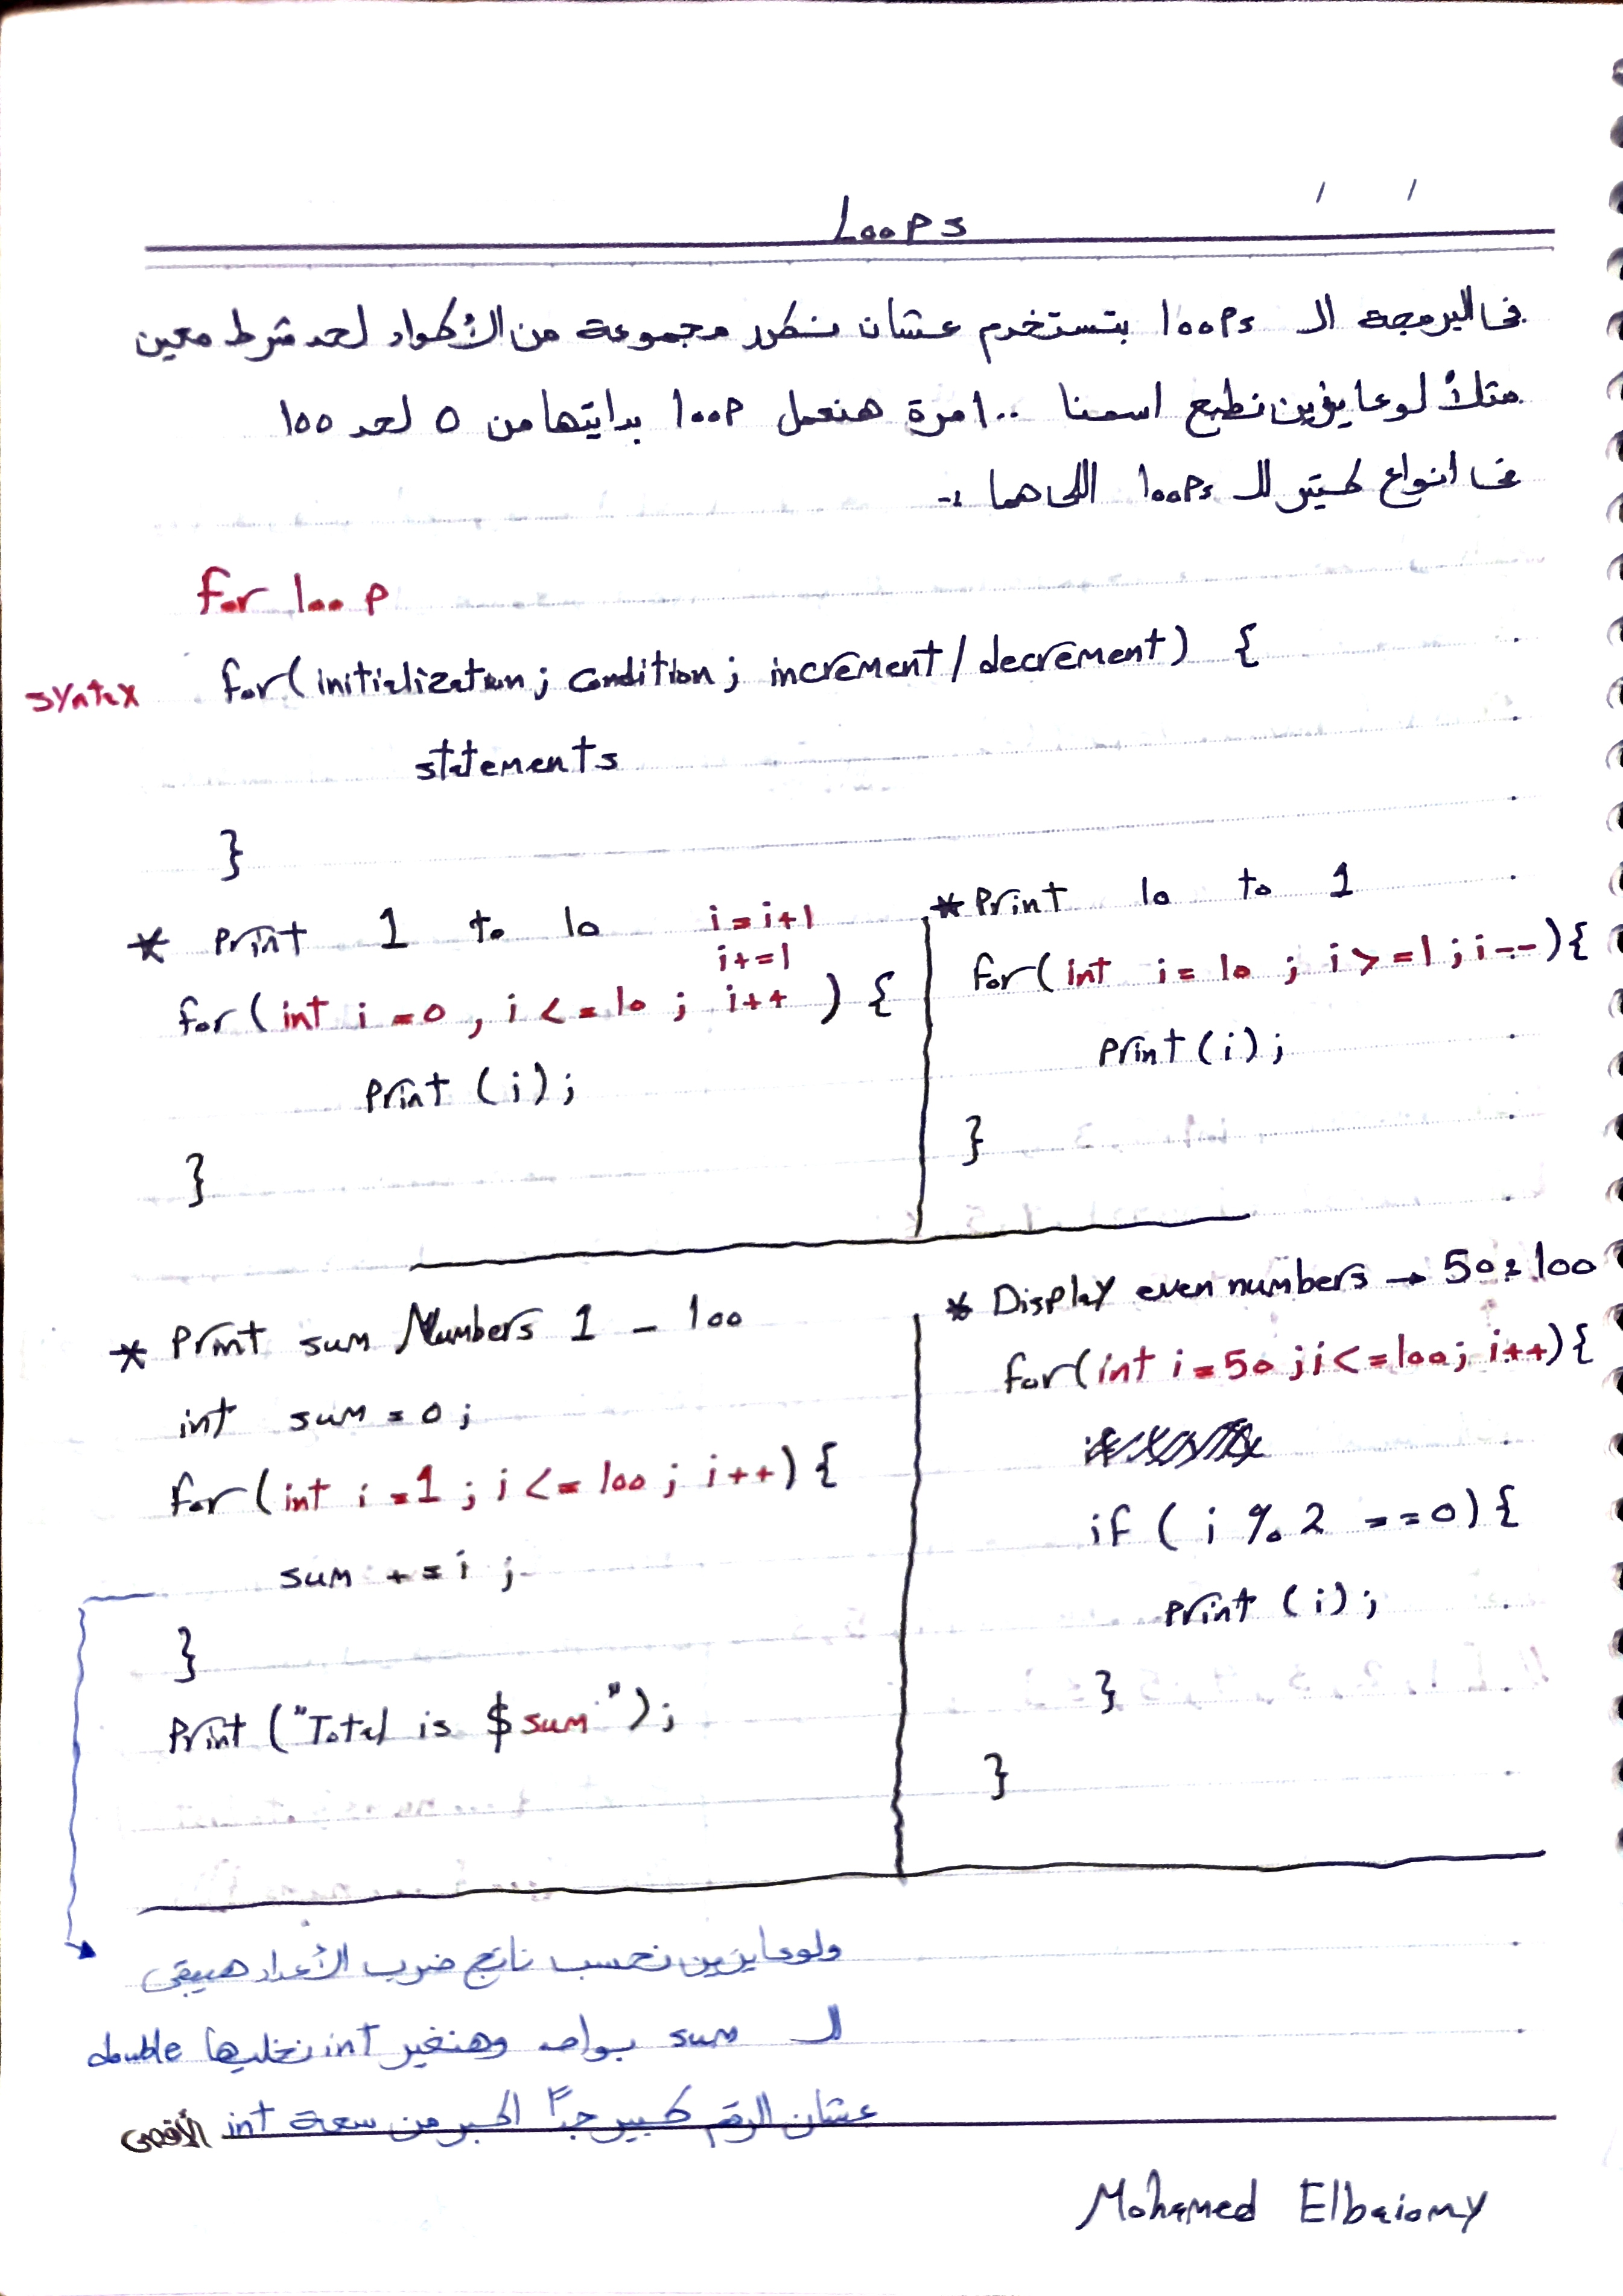 Loops
/ /
فى البرمجه ال loops بتستخدم عشان نكرر مجموعة من الأكواد لحد شرط معين
مثلاً لو عايزين نطبع اسمنا ١٠٠ مرة هنعمل loop بدايتها من 0 لحد 100
فى انواع كتير لل loops اللى هما :-
for loop
syntax for(initialization; condition; increment/decrement) {
statements
}
* print 1 to 10
i=i+1
i+=1
for(int i=0, i<=10; i++) {
print (i);
}
* print 10 to 1
for(int i=10; i>=1; i--){
print(i);
}
* print sum Numbers 1 - 100
int sum=0;
for(int i=1; i<=100; i++){
sum +=i;
}
print("Total is $sum");
* Display even numbers → 50:100
for(int i=50; i<=100; i++){
if (i % 2 ==0){
print (i);
}
}
ولو عايزين نحسب ناتج ضرب الأعداد هيبقى
ال sum بواحد وهنغير int نخليها double
عشان الرقم كبير جداً اكبر من سعة int الأقصى
Mohamed Elbaiomy